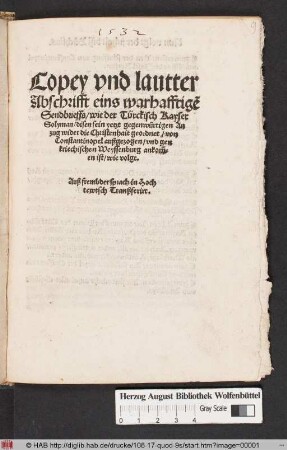 1532
Copey vnd lautter
Abschrifft eins warhafftigē
Sendbrieffs / wie der Türckisch Kayser
Solyman / disen sein yetz gegenwürtigen An
zug wider die Christenhait geordnet / von
Constantinopel außgezogen / vnd gen
kriechischen Weyssenburg ankom̄
en ist / wie volgt.
Auß frembder sprach in Hoch
tewtsch Transferirt.
Herzog August Bibliothek Wolfenbüttel
0 1 2 3 4
Gray Scale
© HAB http://diglib.hab.de/drucke/108-17-quod-9s/start.htm?image=00001